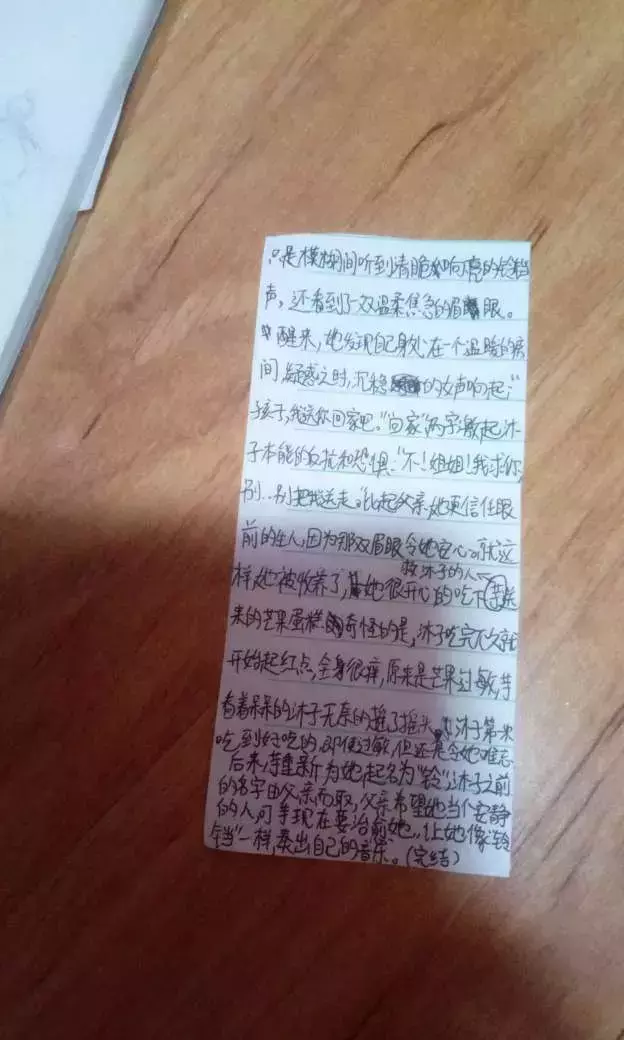 只是模糊间听到清脆响亮的铃铛
声，还看到了一双温柔焦急的眉眼。
醒来，她发现自己身处在一个温暖的房
间，疑惑之时，沉稳的女声响起："
孩子，我送你回家吧。"回家"两字激起沐
子本能的反抗和恐惧："不！姐姐！我求你，
别..别把我送走。"比起父亲，她更信任眼
前的生人，因为那双眉眼令她安心。就这
救沐子的人
样，她被收养了，她很开心的吃下芋送
来的芒果蛋糕，奇怪的是，沐子吃完不久就
开始起红点，全身很痒，原来是芒果过敏，芋
看着呆呆的沐子无奈的摇了摇头，沐子第一次
吃到好吃的，即使过敏，但还是令她难忘。
后来，芋重新为她起名为"铃"，沐子之前
的名字由父亲而取，父亲希望她当个安静
的人，可芋现在要治愈她，让她像"铃
铛"一样，奏出自己的音乐。(完结)